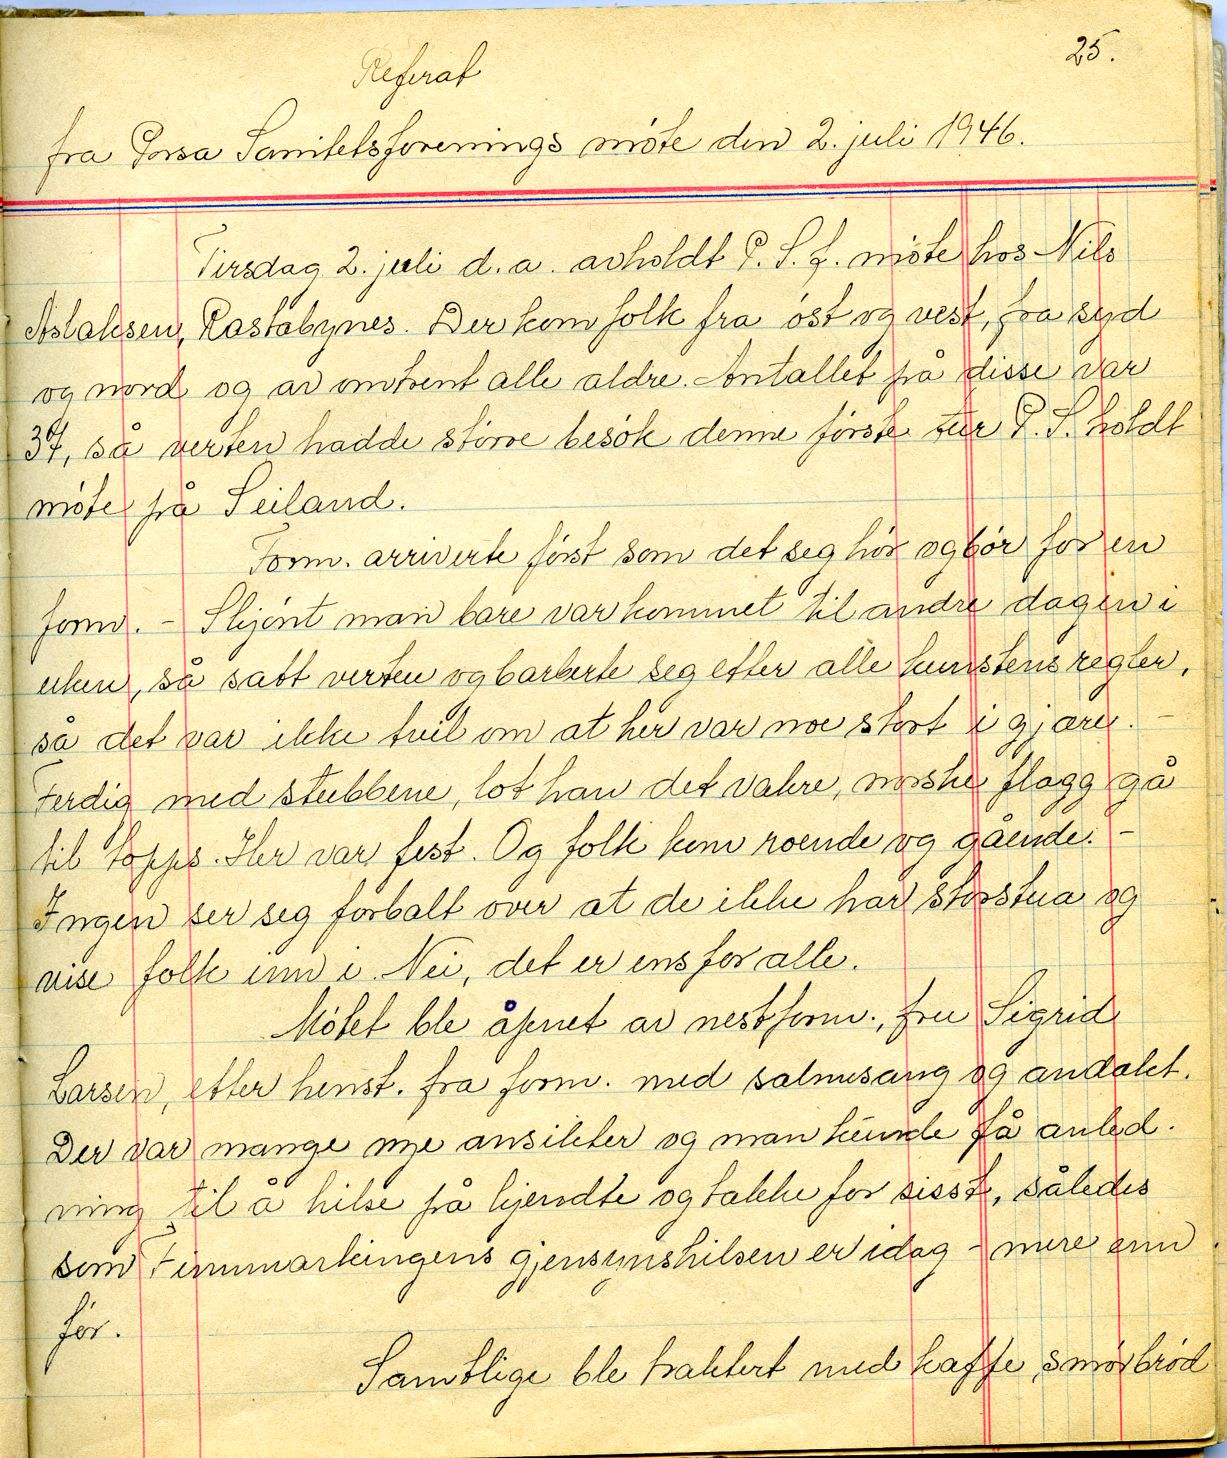 25.
Referat
fra Porsa Sanitetsforenings móte den 2. juli 1946.
Tirsdag 2. juli d.a. avholdt P.S.f. móte hos Nils
Aslaksen, Rastabynes. Der kom folk fra óst og vest, fra syd
og nord og av omtrent alle aldre. Antallet på disse var
37, så verten hadde storve besók denne fórste tur P.S. holdt
móte på Seiland.
Form. arriverte fórst som det seg hór og bór for en
form. - Skjónt man bare var kommet til andre dagen i
uken, så satt verten og barberte seg etter alle kunstens regler,
så det var ikke tvil om at her var noe stort i gjære. -
Ferdig med stubbene, lot han det vakre, norske flagg gå
til topps. Her var fest. Og folk kom roende og gående. -
Ingen ser seg forbalt over at de ikke har storstua og
vise folk inn i. Nei, det er ens for alle.
Mótet ble åpnet av nestform., fru Sigrid
Larsen, etter henst. fra form. med salmesang og andakt.
Der var mange nye ansikter og man kunde få anled-
ning til å hilse på kjendte og takke for sisst, således
som Finnmarkingens gjensynshilsen er idag - mere enn
fór.
Samtlige ble traktert med kaffe, smórbród